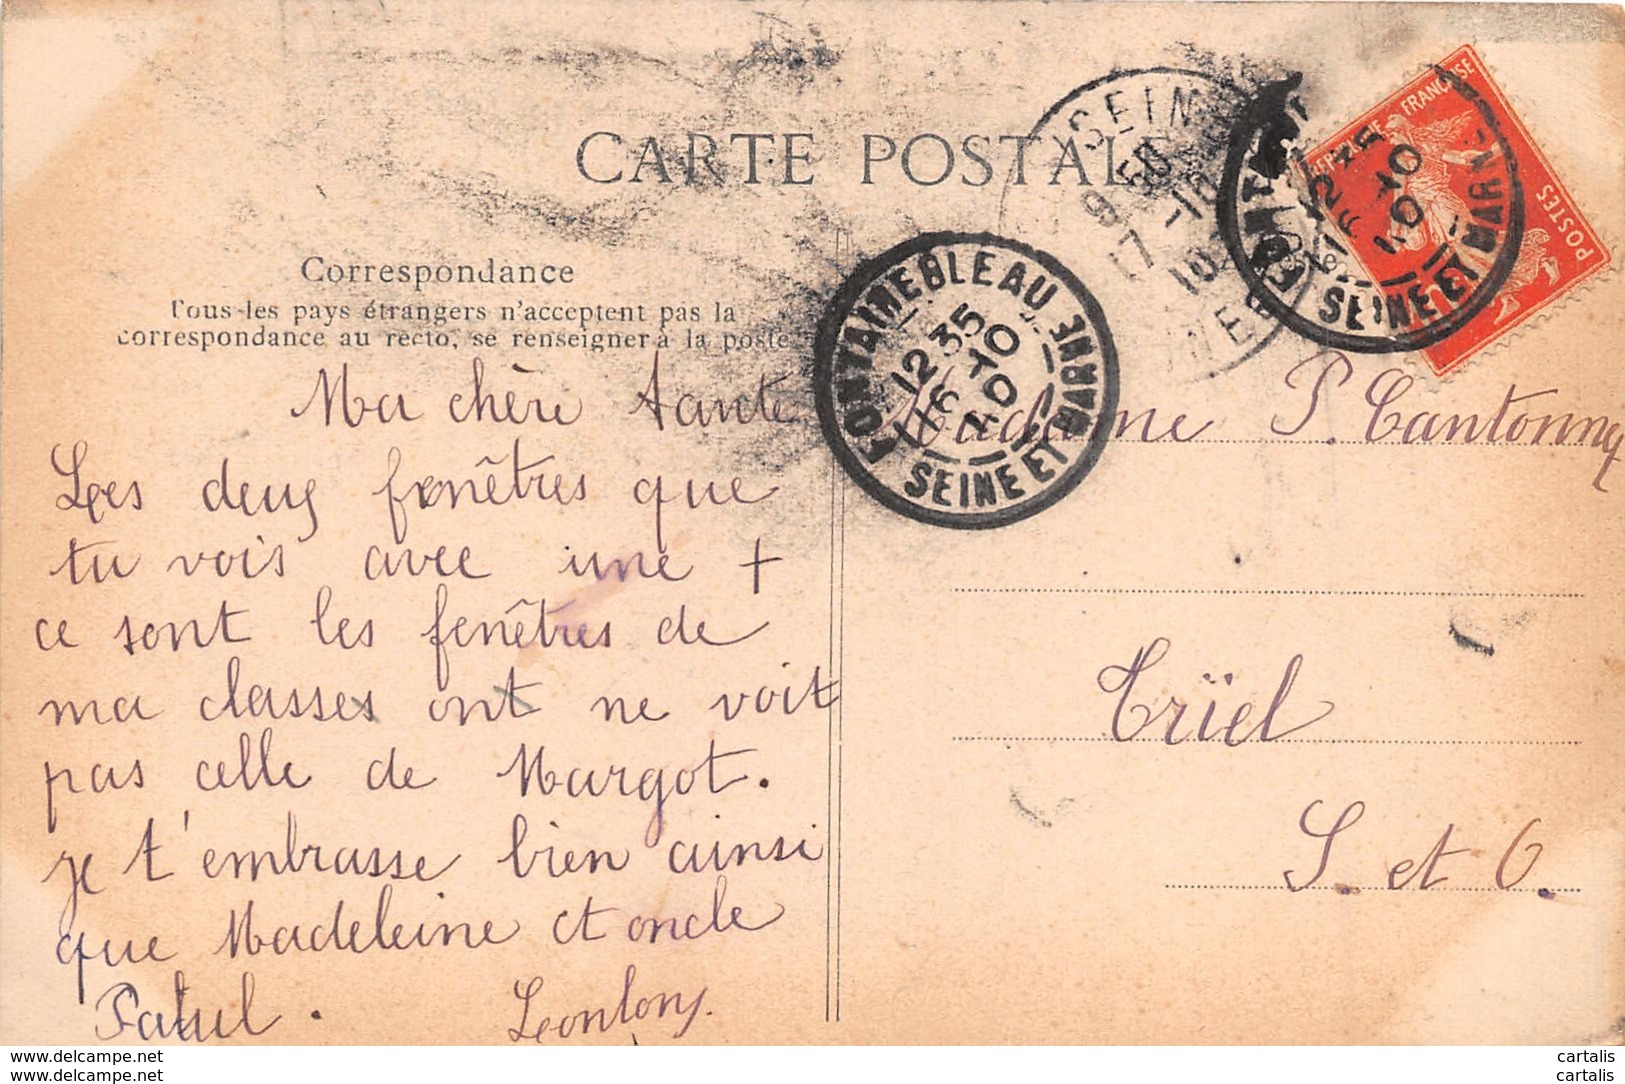 CARTE POSTALE
Correspondance
Tous les pays étrangers n'acceptent pas la
correspondance au recto, se renseigner à la poste
Ma chère tante
Les deux fenêtres que
tu vois avec une +
ce sont les fenêtres de
ma classes ont ne voit
pas celle de Margot.
je t'embrasse bien ainsi
que Madeleine et oncle
Palul.
Madame P. Cantonny
Trïel
S. et O.
FONTAINEBLEAU
12 35
16 -10
10
SEINE ET MARNE
SEINE
9 50
17 -10
10
12 35
16 -10
10
SEINE ET MARNE
REPUBLIQUE FRANÇAISE
POSTES
www.delcampe.net
www.delcampe.net
cartalis
cartalis